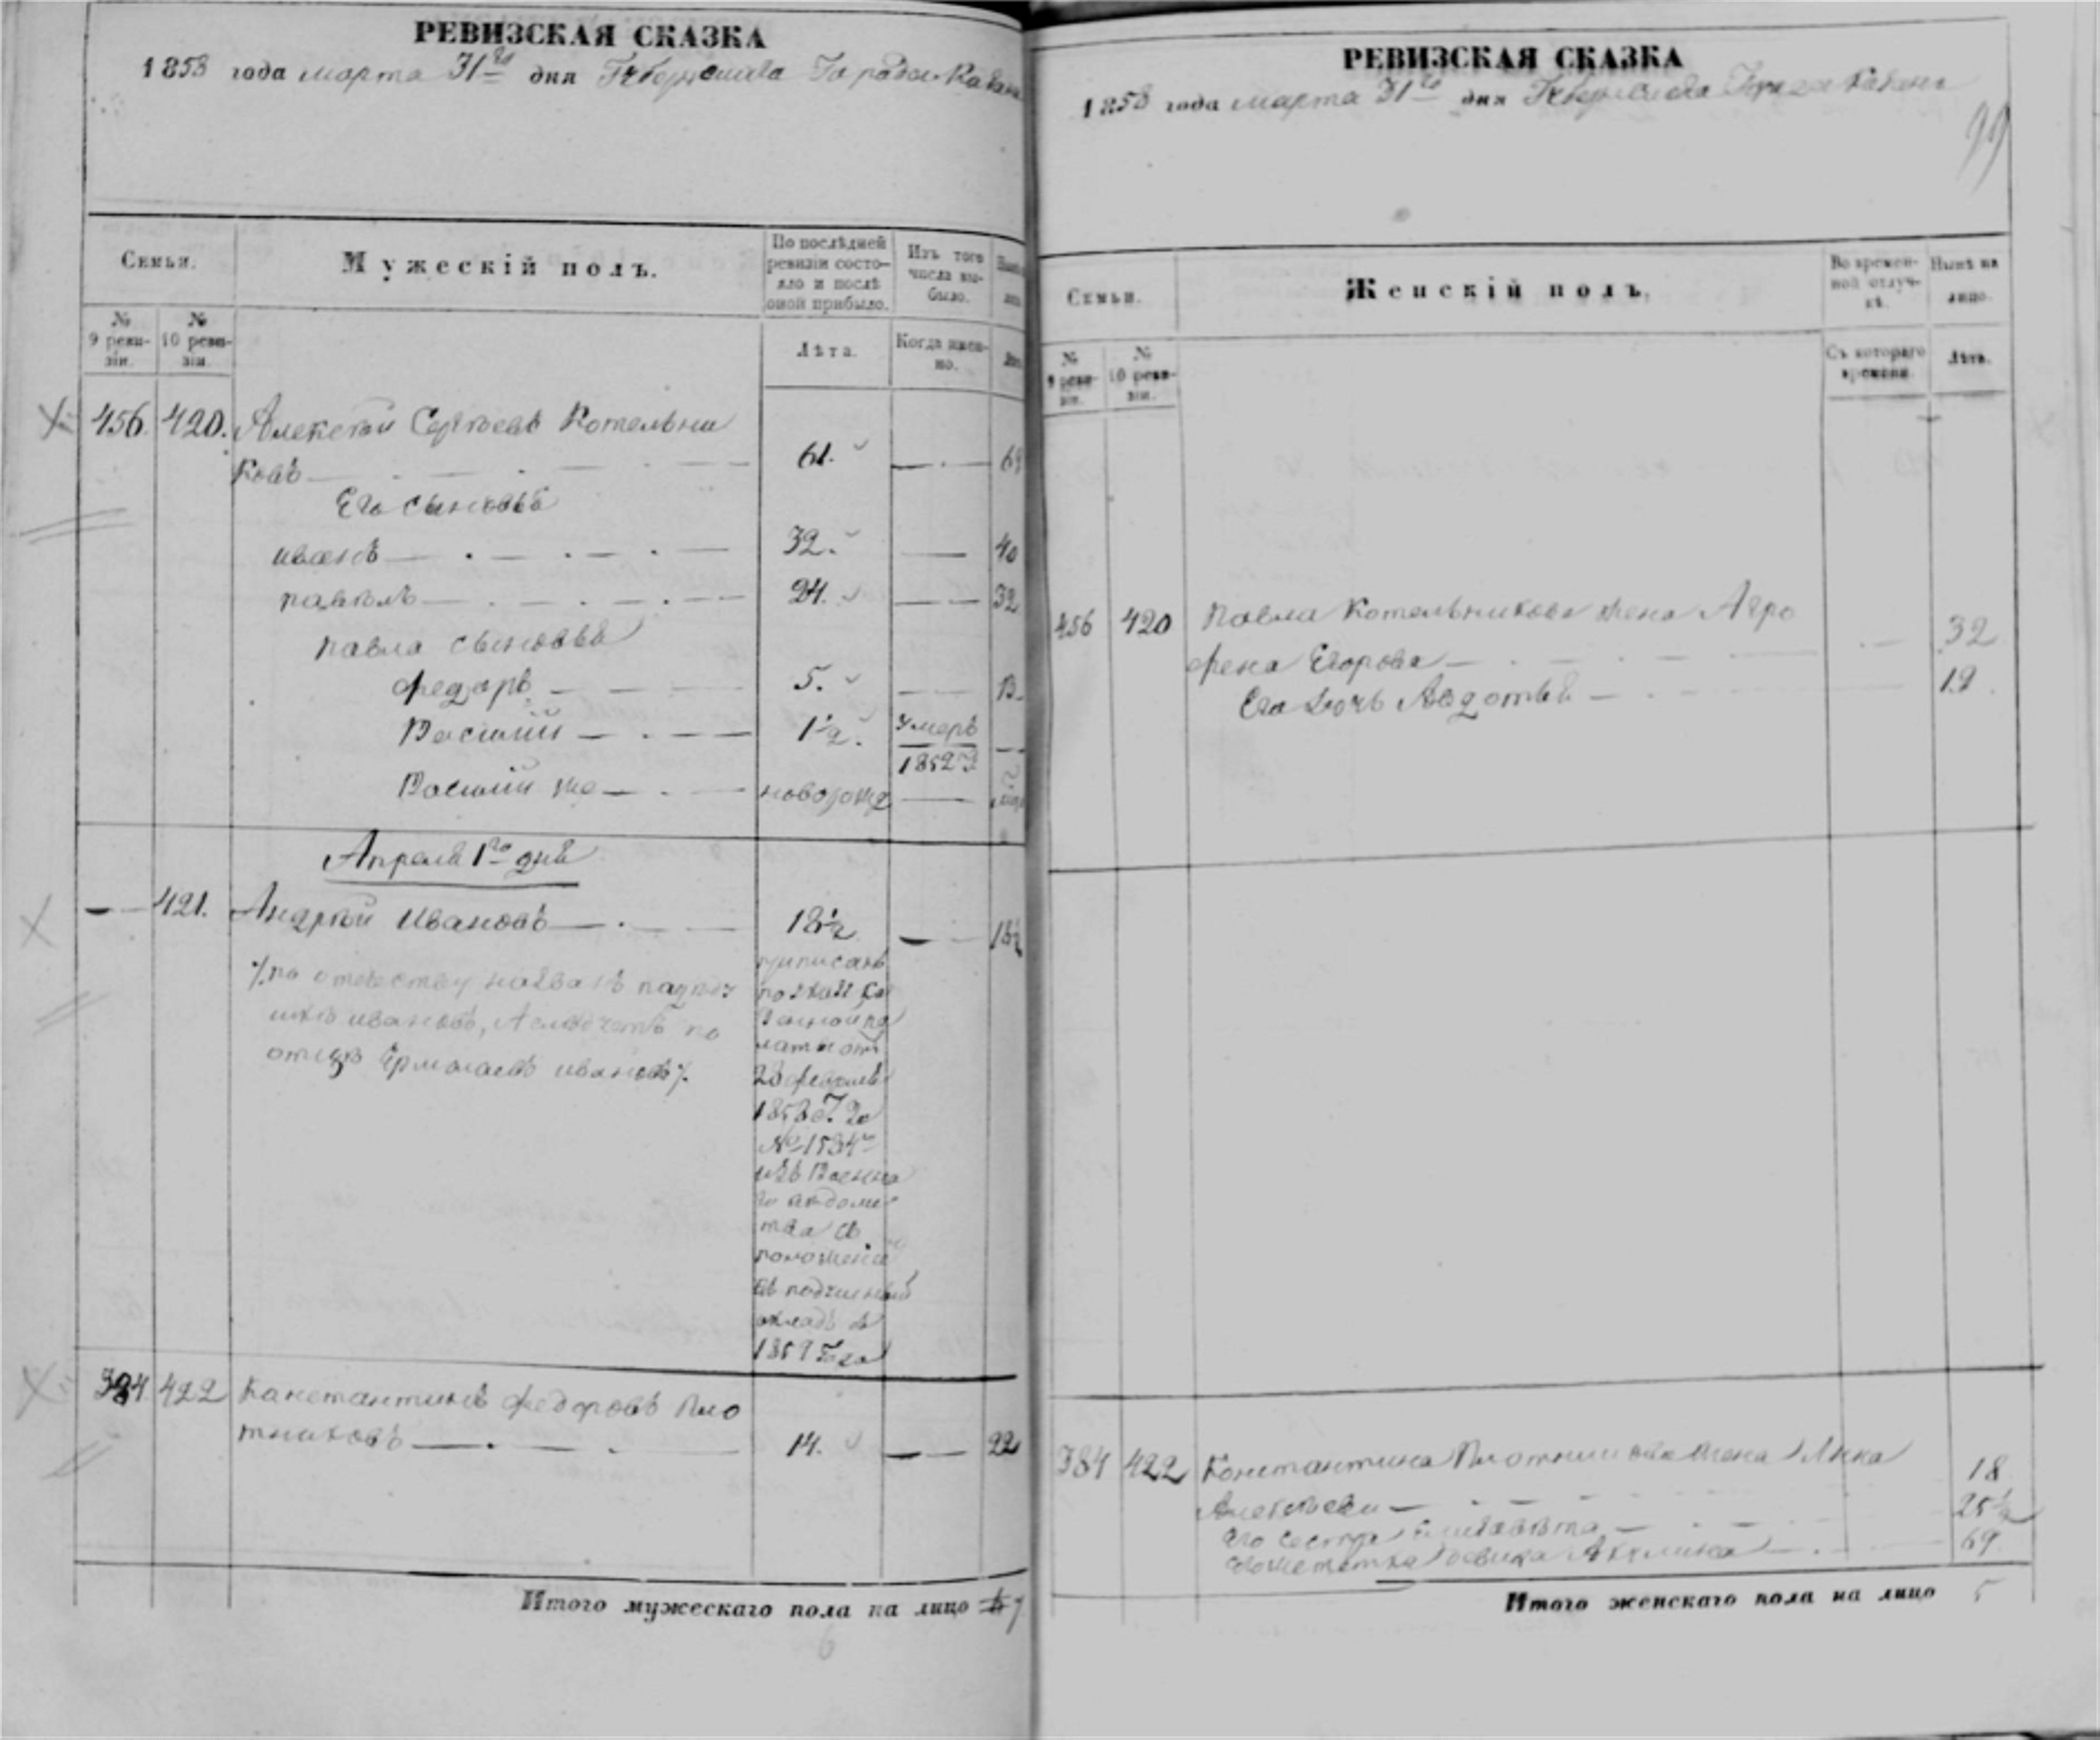 РЕВИЗСКАЯ СКАЗКА
1858 года марта 31го дня Губернскаго Города Казани
Семьи.
Мужескій полъ.
По послѣдней ревизіи состояло и послѣ оной прибыло.
Изъ того числа выбыло.
№ 9 ревизіи.
№ 10 ревизіи.
Лѣта.
Когда именно.
456. 420. Алексѣй Сергѣевъ Котельни
ковъ 61. 69
Его сыновья
Иванъ 32. 40
Павелъ 24. 32
Павла сыновья
Федоръ 5. 13
Василій 1½. Умеръ
1852 г
Василій же новорожд
Апреля 1го дня
421. Андрей Ивановъ 18½ 18½
/.по отечеству
Ивановъ, А по
отцѣ Ермолаевъ Ивановъ/.
приписанъ
по указу Ка
зенной па
латы отъ
28 февраля
1858 года
№ 1534
изъ Военна
го вѣдомс
тва съ
положеніе
въ подушный
окладъ съ
1859 года
384. 422 Константинъ Федоровъ Пло
тниковъ 14. 22
Итого мужескаго пола на лицо 7
6
РЕВИЗСКАЯ СКАЗКА
1858 года марта 31го дня Губернскаго Города Казани
99
Семьи.
Женскій полъ.
Во временной отлучкѣ.
Нынѣ на лицо.
№ 9 ревизіи.
№ 10 ревизіи.
Съ котораго времени.
Лѣта.
456 420 Павла Котельникова жена Агро
фена Егорова 32
Его дочь Авдотья 12
384 422 Константина Плотникова жена Анна 18
Алексѣева 25½
Его сестра Елизавета
тетка девица Акулина 69
Итого женскаго пола на лицо 5